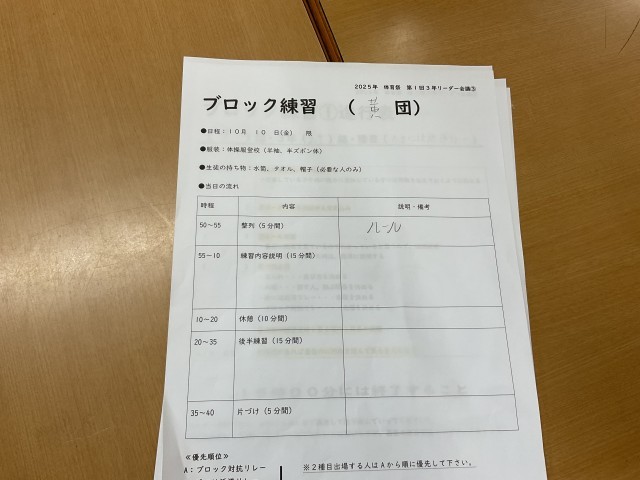 2025年 体育祭 第1回3年リーダー会議③
ブロック練習 （ 黄 団）
●日程：10月 10 日(金) 限
●服装：体操服登校（半袖、半ズボン体）
●生徒の持ち物：水筒、タオル、帽子（必要な人のみ）
●当日の流れ
時程 内容 説明・備考
50～55 整列（5分間） ルール
55－10 練習内容説明（15分間）
10～20 休憩（10分間）
20～35 後半練習（15分間）
35～40 片づけ（5分間）
≪優先順位≫
A：ブロック対抗リレー
※2種目出場する人はAから順に優先して下さい。